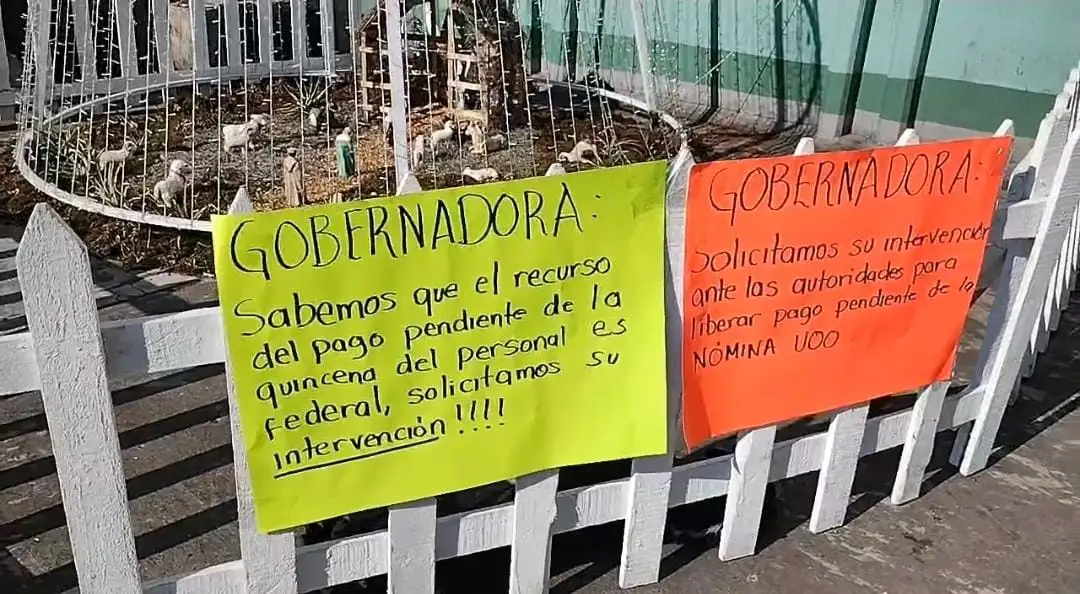 GOBERNADORA:
Sabemos que el recurso
del pago pendiente de la
quincena del personal es
Federal, solicitamos su
intervención !!!!
GOBERNADORA:
Solicitamos su intervención
ante las autoridades para
liberar pago pendiente de la
NÓMINA UOO